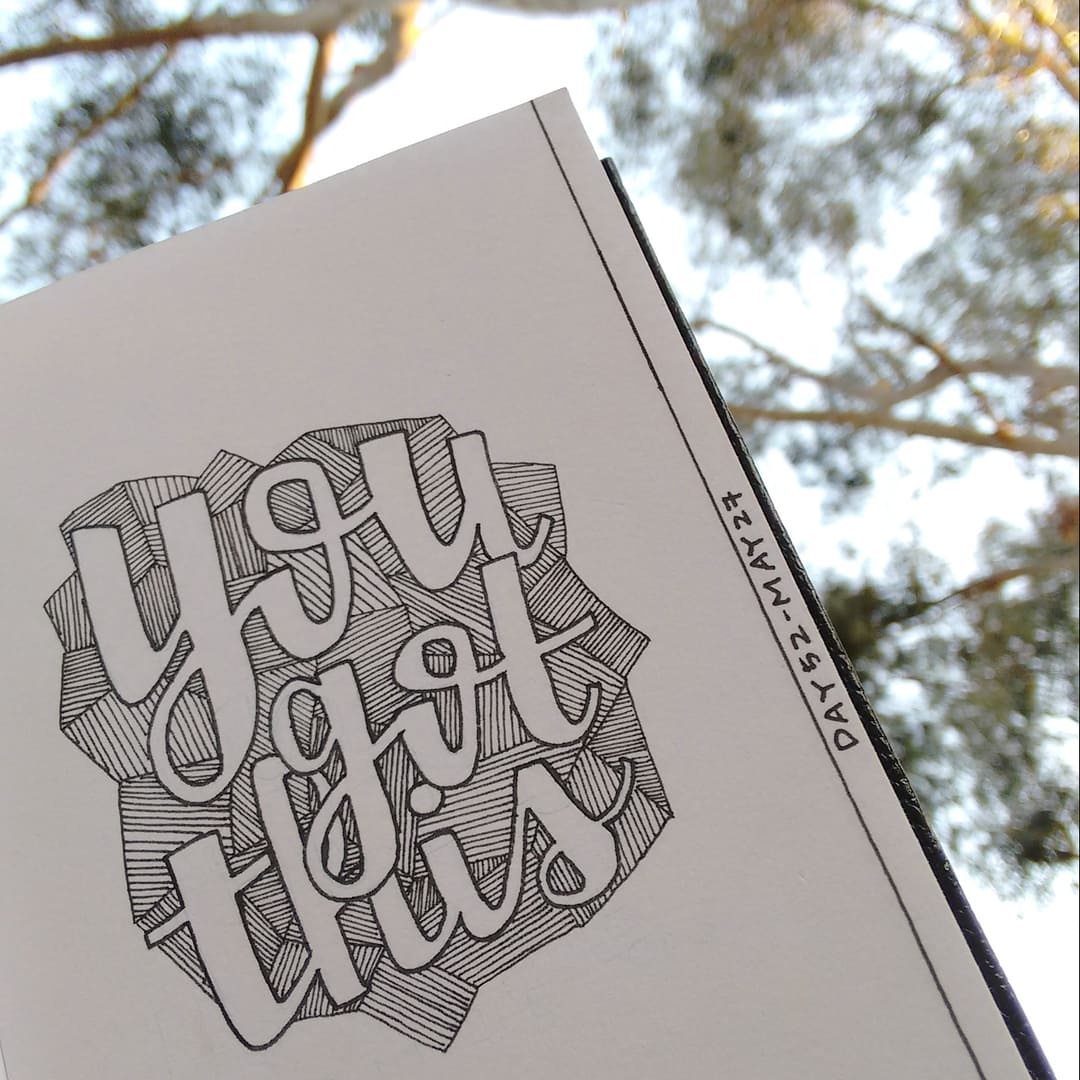 you
got
this
DAY 52 - MAY 27